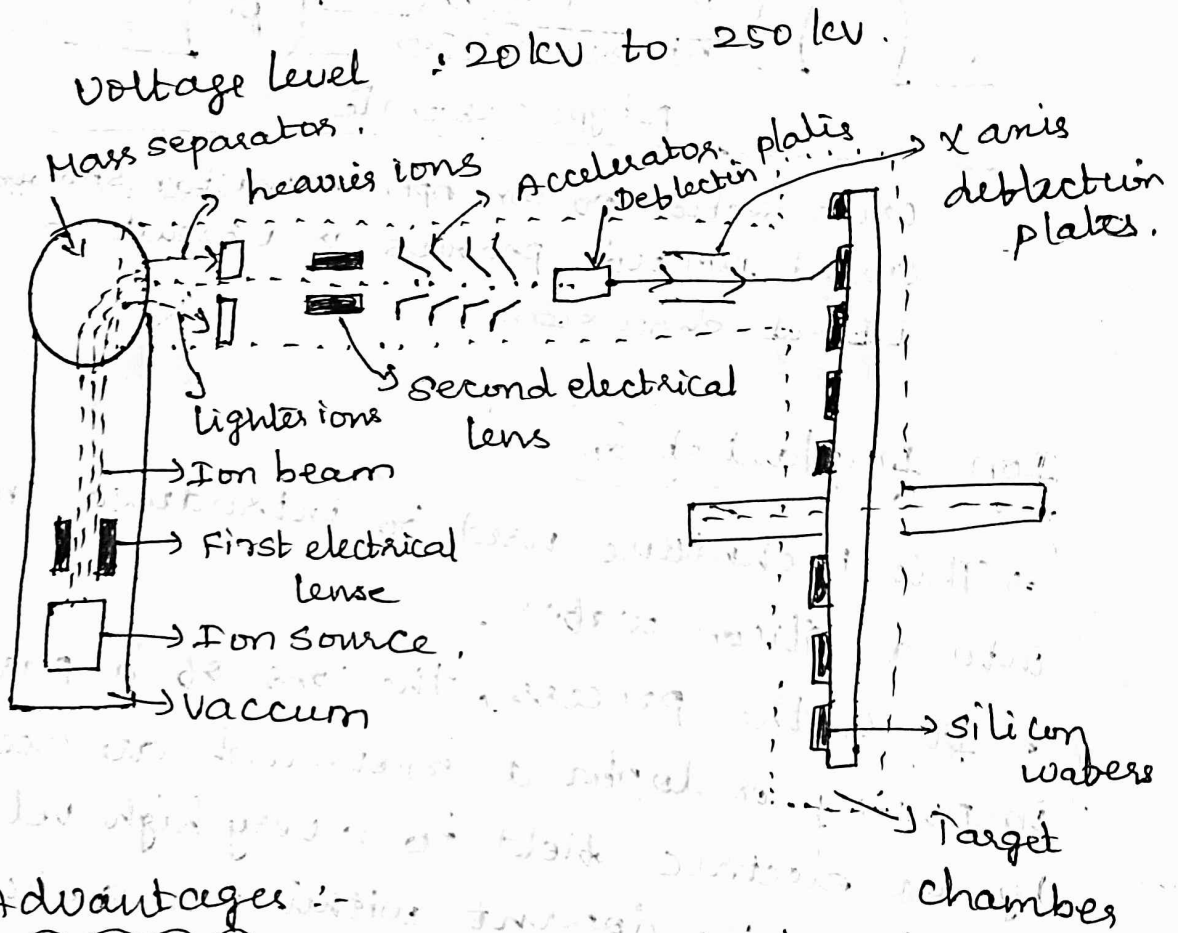 Voltage level : 20kV to 250 kV.
Mass separator.
heavier ions
Accelerator plates
Deblectin
X axis
deblection
plates.
Second electrical
lens
lighter ions
Ion beam
First electrical
lense
Ion Source.
Vaccum
silicon
wabers
Target
chamber
Advantages :-